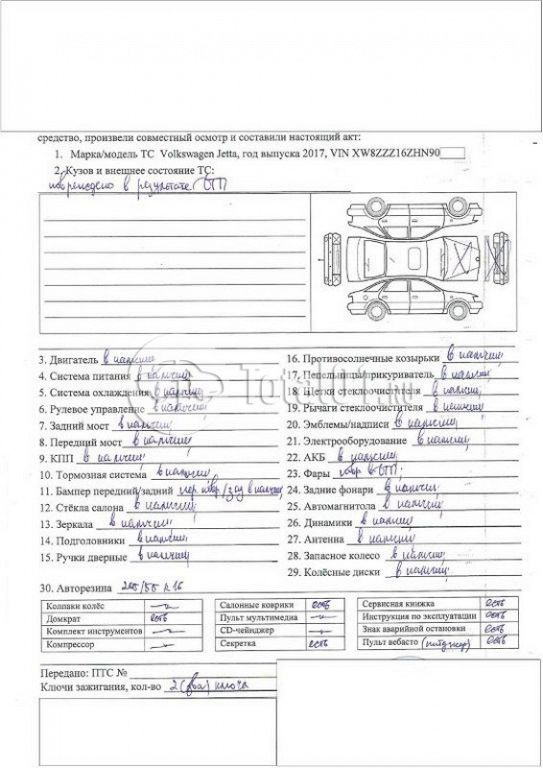 средство, произвели совместный осмотр и составили настоящий акт:
1. Марка/модель ТС Volkswagen Jetta, год выпуска 2017, VIN XW8ZZZ16ZHN90
2. Кузов и внешнее состояние ТС:
повреждено в результате ДТП
3. Двигатель в наличии
4. Система питания в наличии
5. Система охлаждения в наличии
6. Рулевое управление в наличии
7. Задний мост в наличии
8. Передний мост в наличии
9. КПП в наличии
10. Тормозная система в наличии
11. Бампер передний/задний пер. повр/зад в наличии
12. Стёкла салона в наличии
13. Зеркала в наличии
14. Подголовники в наличии
15. Ручки дверные в наличии
16. Противосолнечные козырьки в наличии
17. Пепельницы/прикуриватель в наличии
18. Щетки стеклоочистителя в наличии
19. Рычаги стеклоочистителя в наличии
20. Эмблемы/надписи в наличии
21. Электрооборудование в наличии
22. АКБ в наличии
23. Фары повр в ДТП
24. Задние фонари в наличии
25. Автомагнитола в наличии
26. Динамики в наличии
27. Антенна в наличии
28. Запасное колесо в наличии
29. Колёсные диски в наличии
30. Авторезина 205/55 R16
Колпаки колёс —
Домкрат есть
Комплект инструментов —
Компрессор —
Салонные коврики есть
Пульт мультимедиа —
CD-чейнджер —
Секретка есть
Сервисная книжка есть
Инструкция по эксплуатации есть
Знак аварийной остановки есть
Пульт вебасто есть
Передано: ПТС №
Ключи зажигания, кол-во 2 (два) ключа
Total01.ru